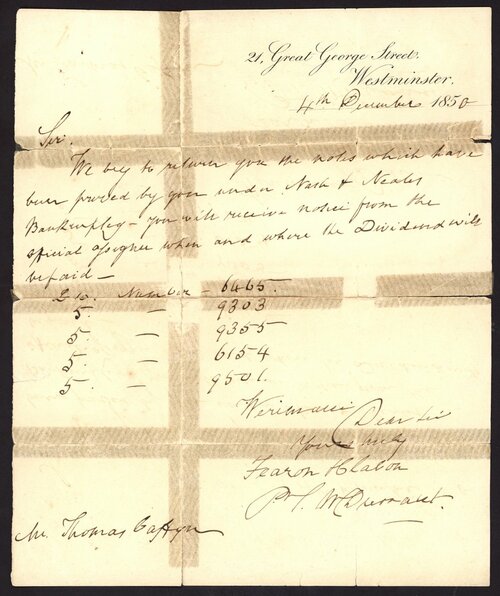 21, Great George Street.
Westminster.
4th December 1850
Sir.
We beg to return you the notes which have
been proved by you under Nash & Neales
Bankruptcy – You will receive notice from the
official assignee when and where the Dividend will
be paid –
£10. Number – 6465.
5. – 9303
5. – 9355
5. – 6154
5. – 9501.
We remain Dear Sir
Yours truly
Fearon & Clabon
Mr. Thomas Caffyn